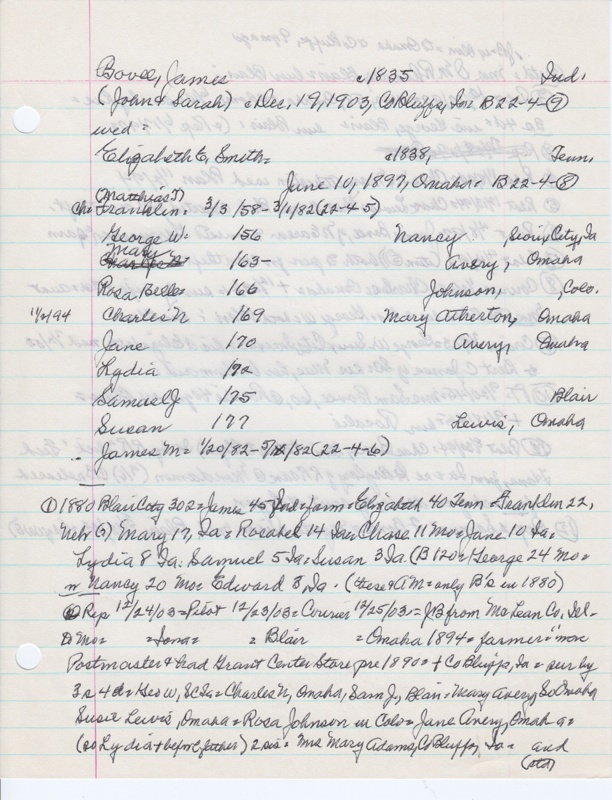 Bovee, James c1835 Ind.
(John & Sarah) c Dec, 19, 1903, Co Bluffs, Ia = B 22-4-9
wed =
Elizabeth E, Smith = c1838, Tenn,
June 10, 1897, Omaha = B 22-4-8
(Matthias T)
Ch: Franklin = 3/3/58 - 3/1/82 (22-4-5)
George W = /56 Nancy Sioux City, Ia
Mary
/63 - Avery, Omaha
Rosa Belle = /66 Johnson, , Colo.
11/2/94 Charles N /69 Mary Atherton, Omaha
Jane /70 Avery, Omaha
Lydia /72
Samuel J /75 Blair
Susan /77 Lewis, Omaha
James M = 1/20/82 - 5/12/82 (22-4-6)
① 1880 Blair City 302 = James 45 Ind = farm = Elizabeth 40 Tenn = Franklin 22,
Nebr (?) Mary 17, Ia = Rosabel 14 Ia = Chase 11 Mo = Jane 10 Ia =
Lydia 8 Ia = Samuel 5 Ia = Susan 3 Ia. (B 120 = George 24 Mo =
m Nancy 20 Mo = Edward 3, Ia = (these & AM = only B's in 1880)
Rep 12/24/03 = Pilot 12/23/03 = Courier 12/25/03 = JB from McLean Co, Ill -
to Mo = = Iowa = = Blair = Omaha 1894 = farmer =
Postmaster & had Grant Center Store pre 1890 = + Co Bluffs, Ia = sur by
3 s 4 d = Geo W, SC Ia = Charles N, Omaha, Sam J, Blair = Mary Avery, So Omaha
Susie Lewis, Omaha = Rosa Johnson in Colo = Jane Avery, Omaha =
(so Lydia + before father) 2 sis = Mrs Mary Adams, Co Bluffs, Ia = and
(ovr)